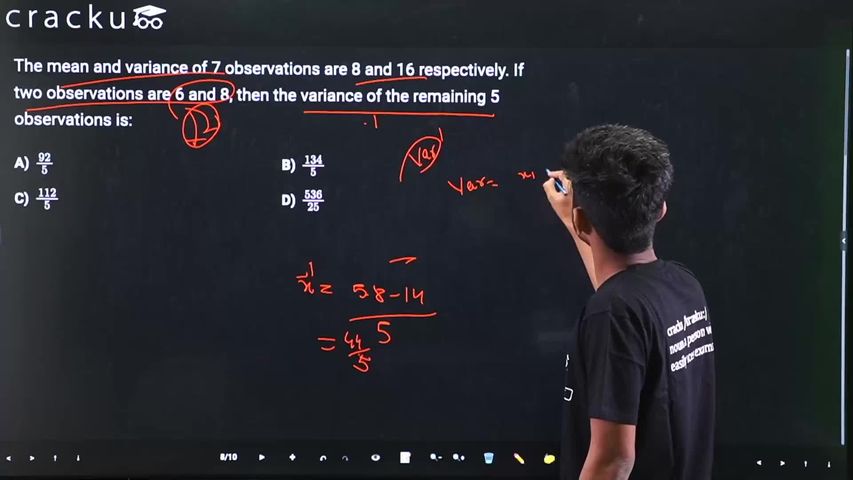 cracku
The mean and variance of 7 observations are 8 and 16 respectively. If
two observations are 6 and 8, then the variance of the remaining 5
observations is:
12
Var
A) 92/5
B) 134/5
C) 112/5
D) 536/25
Var = x₁
x̄ = 58-14
5
= 44/5
cracku
noun: a person w
easily
8/10